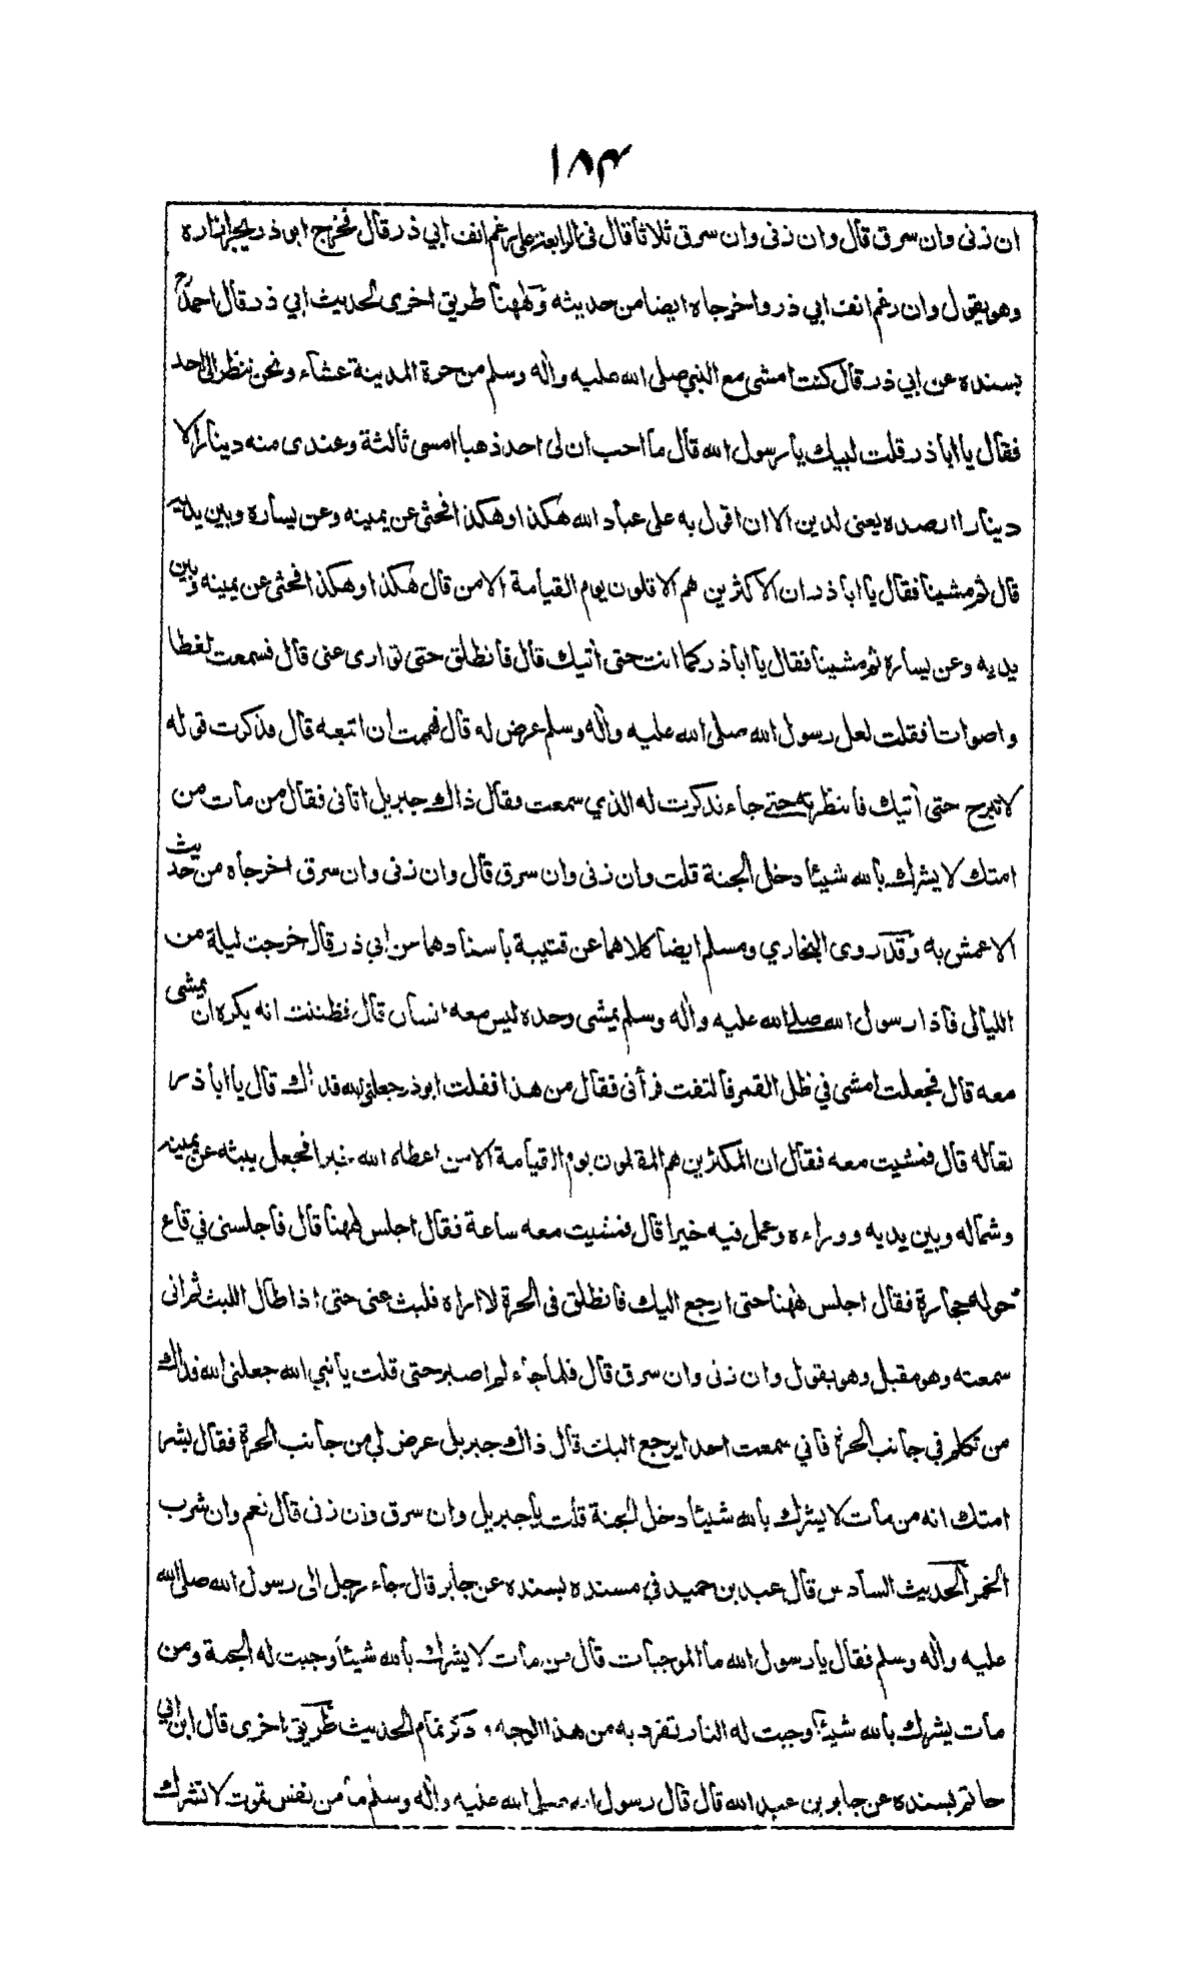 ١٨٣
ان زنى وان سرق قال وان زنى وان سرق ثلاثا قال فى الرابعة على رغم انف ابي ذر قال فخرج ابو ذر يجر ازاره
وهو يقول وان رغم انف ابي ذر واخرجاه ايضا من حديثه وههنا طريق اخرى لحديث ابي ذر قال احمد رح
بسنده عن ابي ذر قال كنت امشى مع النبي صلى الله عليه واله وسلم من حرة المدينة عشاء ونحن ننظر الى احد
فقال يا ابا ذر قلت لبيك يا رسول الله قال ما احب ان لى احد ذهبا امسى ثالثة وعندى منه دينار الا
دينارا ارصده يعنى لدين الا ان اقول به على عباد الله هكذا وهكذا فحثى عن يمينه وعن يساره وبين يديه
قال ثم مشينا فقال يا ابا ذر ان الاكثرين هم الاقلون يوم القيامة الا من قال هكذا وهكذا فحثى عن يمينه وبين
يديه وعن يساره ثم مشينا فقال يا ابا ذر كما انت حتى أتيك قال فانطلق حتى توارى عنى قال فسمعت لغطا
واصواتا فقلت لعل رسول الله صلى الله عليه واله وسلم عرض له قال فهممت ان اتبعه قال فذكرت قوله
لا تبرح حتى أتيك فانتظرته حتے جاء فذكرت له الذي سمعت فقال ذاك جبريل اتانى فقال من مات من
امتك لا يشرك بالله شيئا دخل الجنة قلت وان زنى وان سرق قال وان زنى وان سرق اخرجاه من حديث
الاعمش به وقد روى البخاري ومسلم ايضا كلاهما عن قتيبة باسنادهما عن ابي ذر قال خرجت ليلة من
الليالى فاذا رسول الله صلے الله عليه واله وسلم يمشى وحده ليس معه انسان قال فظننت انه يكره ان يمشى
معه قال فجعلت امشى في ظل القمر فالتفت فرأنى فقال من هذا فقلت ابو ذر جعلنى الله فداك قال يا ابا ذر
تعاله قال فمشيت معه فقال ان المكثرين هم المقلون يوم القيامة الا من اعطاه الله خيرا فجعل يبثه عن يمينه
وشماله وبين يديه ووراءه وعمل فيه خيرا قال فمشيت معه ساعة فقال اجلس ههنا قال فاجلسنى في قاع
حوله حجارة فقال اجلس ههنا حتى ارجع اليك فانطلق فى الحرة لا اراه فلبث عنى حتى اذا طال اللبث ثم انى
سمعته وهو مقبل وهو يقول وان زنى وان سرق قال فلما جاء لم اصبر حتى قلت يا نبي الله جعلنى الله فداك
من تكلم في جانب الحرة فاني سمعت احدا يرجع اليك قال ذاك جبريل عرض لي من جانب الحرة فقال بشر
امتك انه من مات لا يشرك بالله شيئا دخل الجنة قلت يا جبريل وان سرق وان زنى قال نعم وان شرب
الخمر الحديث السادس قال عبد بن حميد في مسنده بسنده عن جابر قال جاء رجل الى رسول الله صلى الله
عليه واله وسلم فقال يا رسول الله ما الموجبات قال من مات لا يشرك بالله شيئا وجبت له الجنة ومن
مات يشرك بالله شيئا وجبت له النار تفرد به من هذا الوجه وذكر تمام الحديث طريق اخرى قال ابن ابي
حاتم بسنده عن جابر بن عبد الله قال قال رسول الله صلى الله عليه واله وسلم ما من نفس تموت لا تشرك